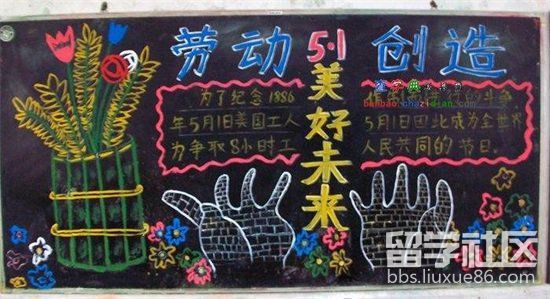 劳动
5·1
创造
美好未来
为了纪念1886
年5月1日美国工人
为争取8小时工
5月1日因此成为全世界
人民共同的节日。
查字典
banbao.chazidian.com
留学社区
bbs.liuxue86.com